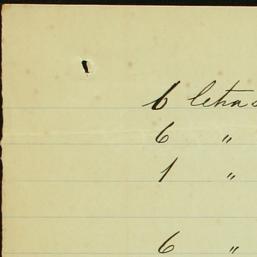 6 letras
6 "
1 "
6 "